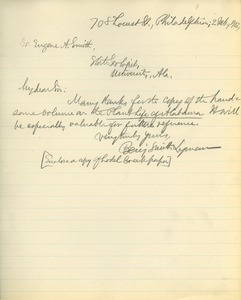 708 Locust St., Philadelphia, 2 Feb., 1902
Dr. Eugene A. Smith,
State Geologist,
University, Ala.
My dear Sir:
Many thanks for the copy of the hand-
some volume on the Plant Life of Alabama. It will
be especially valuable for future reference.
Very truly yours,
Benj. Smith Lyman
[Enclose a copy of